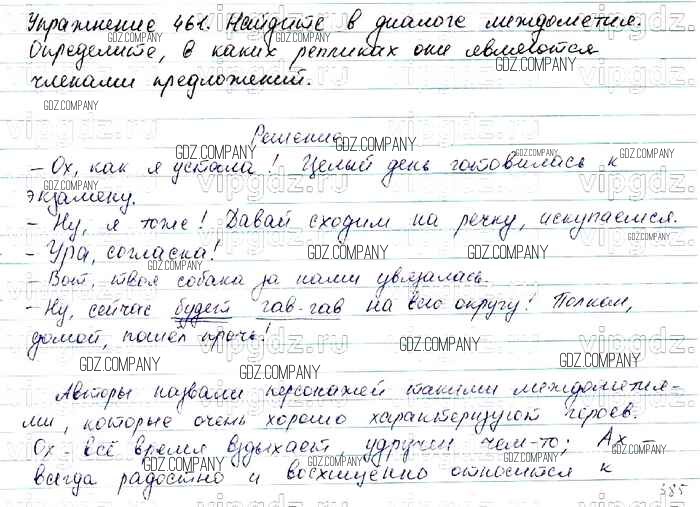 Упражнение 461. Найдите в диалоге междометия.
Определите, в каких репликах они являются
членами предложений.
Решение
– Ох, как я устала! Целый день готовилась к
экзамену.
– Ну, я тоже! Давай сходим на речку, искупаемся.
– Ура, согласна!
– Вот, твоя собака за нами увязалась.
– Ну, сейчас будет гав-гав на всю округу! Полкан,
домой, пошёл прочь!
Авторы назвали персонажей такими междометия-
ми, которые очень хорошо характеризуют героев.
Ох – всё время вздыхает, удручён чем-то; Ах –
всегда радостно и восхищенно относится к
385
GDZ.COMPANY
vipgdz.ru